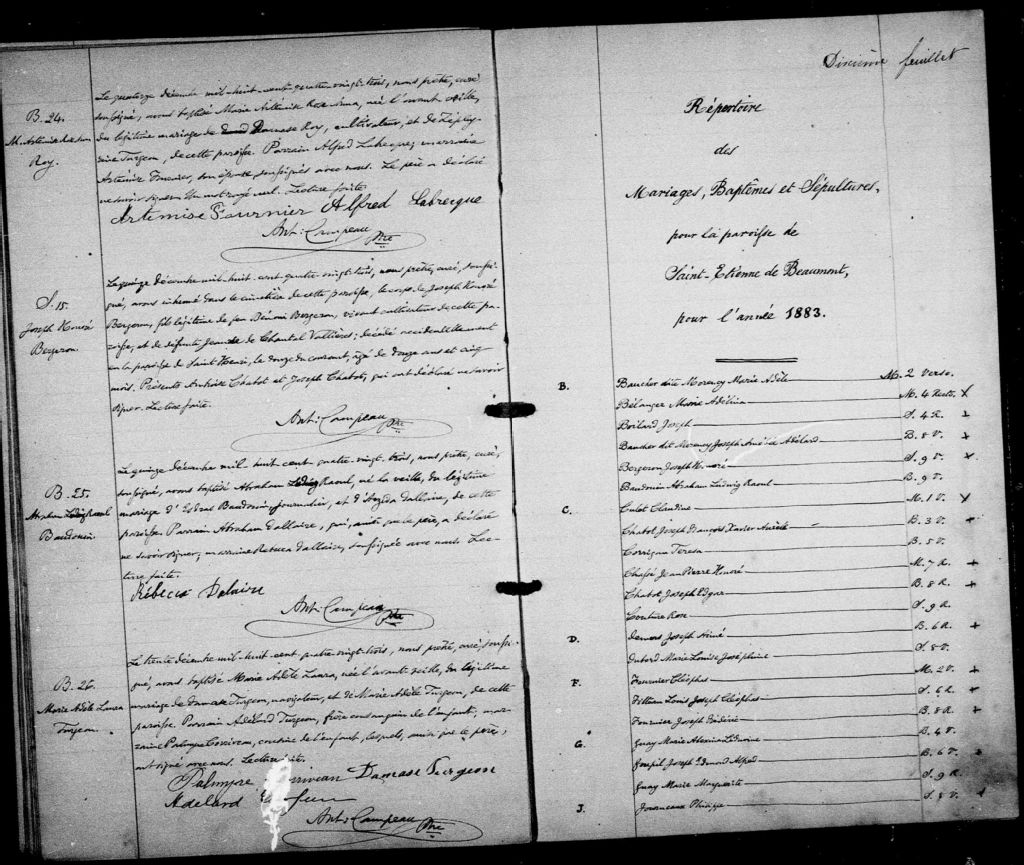 B. 24.
M. Artémise Rose Anna
Roy.
Le quatorze décembre mil-huit-cent-quatre-vingt-trois, nous prêtre, curé
soussigné, avons baptisé Marie Artémise Rose Anna, née l'avant-veille,
du légitime mariage de Damase Roy, cultivateur, et de Zéphy-
rine Turgeon, de cette paroisse. Parrain Alfred Labecque; marraine
Artémise Fournier, son épouse, soussignés avec nous. Le père a déclaré
ne savoir signer. Un mot rayé nul. Lecture faite.
Artémise Fournier Alfred Labrecque
Ant: Campeau Ptre
S. 15.
Joseph Honoré
Bergeron.
Le quinze décembre mil-huit-cent-quatre-vingt-trois, nous prêtre, curé, soussi-
gné, avons inhumé dans le cimetière de cette paroisse, le corps de Joseph Honoré
Bergeron, fils légitime de feu Bénoni Bergeron, vivant cultivateur de cette pa-
roisse, et de défunte Jeanne de Chantal Vallières; décédé accidentellement
en la paroisse de Saint-Henri, le douze du courant, âgé de douze ans et cinq
mois. Présents Antoine Chabot et Joseph Chabot, qui ont déclaré ne savoir
signer. Lecture faite.
Ant: Campeau Ptre
B. 25.
Abraham Raoul
Baudouin.
Le quinze décembre mil-huit-cent-quatre-vingt-trois, nous prêtre, curé,
soussigné, avons baptisé Abraham Raoul, né la veille, du légitime
mariage d'Esdras Baudouin, journalier, et d'Hezida Dallaire, de cette
paroisse. Parrain Abraham Dallaire, qui, ainsi que le père, a déclaré
ne savoir signer; marraine Rebecca Dallaire, soussignée avec nous. Lec-
ture faite.
Rébecca Dalaire
Ant: Campeau Ptre
B. 26.
Marie Adèle Laura
Turgeon.
Le trente décembre mil-huit-cent-quatre-vingt-trois, nous prêtre, curé, soussi-
gné, avons baptisé Marie Adèle Laura, née l'avant-veille, du légitime
mariage de Damase Turgeon, navigateur, et de Marie Adèle Turgeon, de cette
paroisse. Parrain Adélard Turgeon, frère consanguin de l'enfant; mar-
raine Palmyre Corriveau, cousine de l'enfant, lesquels, ainsi que le père,
ont signé avec nous. Lecture faite.
Palmyre Damase Turgeon
Adelard
Ant: Campeau Ptre
Dixième feuillet
Répertoire
des
Mariages, Baptêmes et Sépultures,
pour la paroisse de
Saint-Etienne de Beaumont,
pour l'année 1883.
B. Baucher dite Morency Marie Adèle M. 2 Verso.
Bélanger Marie Adélina M. 4 Recto. X
Boilard Joseph S. 4 R. +
Baucher dit Morency Joseph Amédée Adélard B. 8 V. +
Bergeron Joseph Honoré S. 9 V. X
Baudouin Abraham Ludwig Raoul B. 9 V.
C. Culot Claudine M. 1 V. X
Chabot Joseph François Xavier Aurèle B. 3 V. +
Corrigan Teresa B. 5 V.
Chassé Jean Pierre Honoré M. 7 R. +
Chabot Joseph Edgar B. 8 R. +
Couture Rose S. 9 R.
D. Demers Joseph Aimé B. 6 R. +
Dubord Marie Louise Joséphine S. 8 V.
F. Fournier Cléophas M. 2 V. +
Filteau Louis Joseph Cléophas S. 6 R. +
Fournier Joseph Frédéric B. 8 R. +
G. Guay Marie Alexina B. 4 V.
Goupil Joseph Edmond Alfred B. 6 V. +
Guay Marie Marguerite S. 9 R.
J. Journeaux Philippe S. 8 V. +